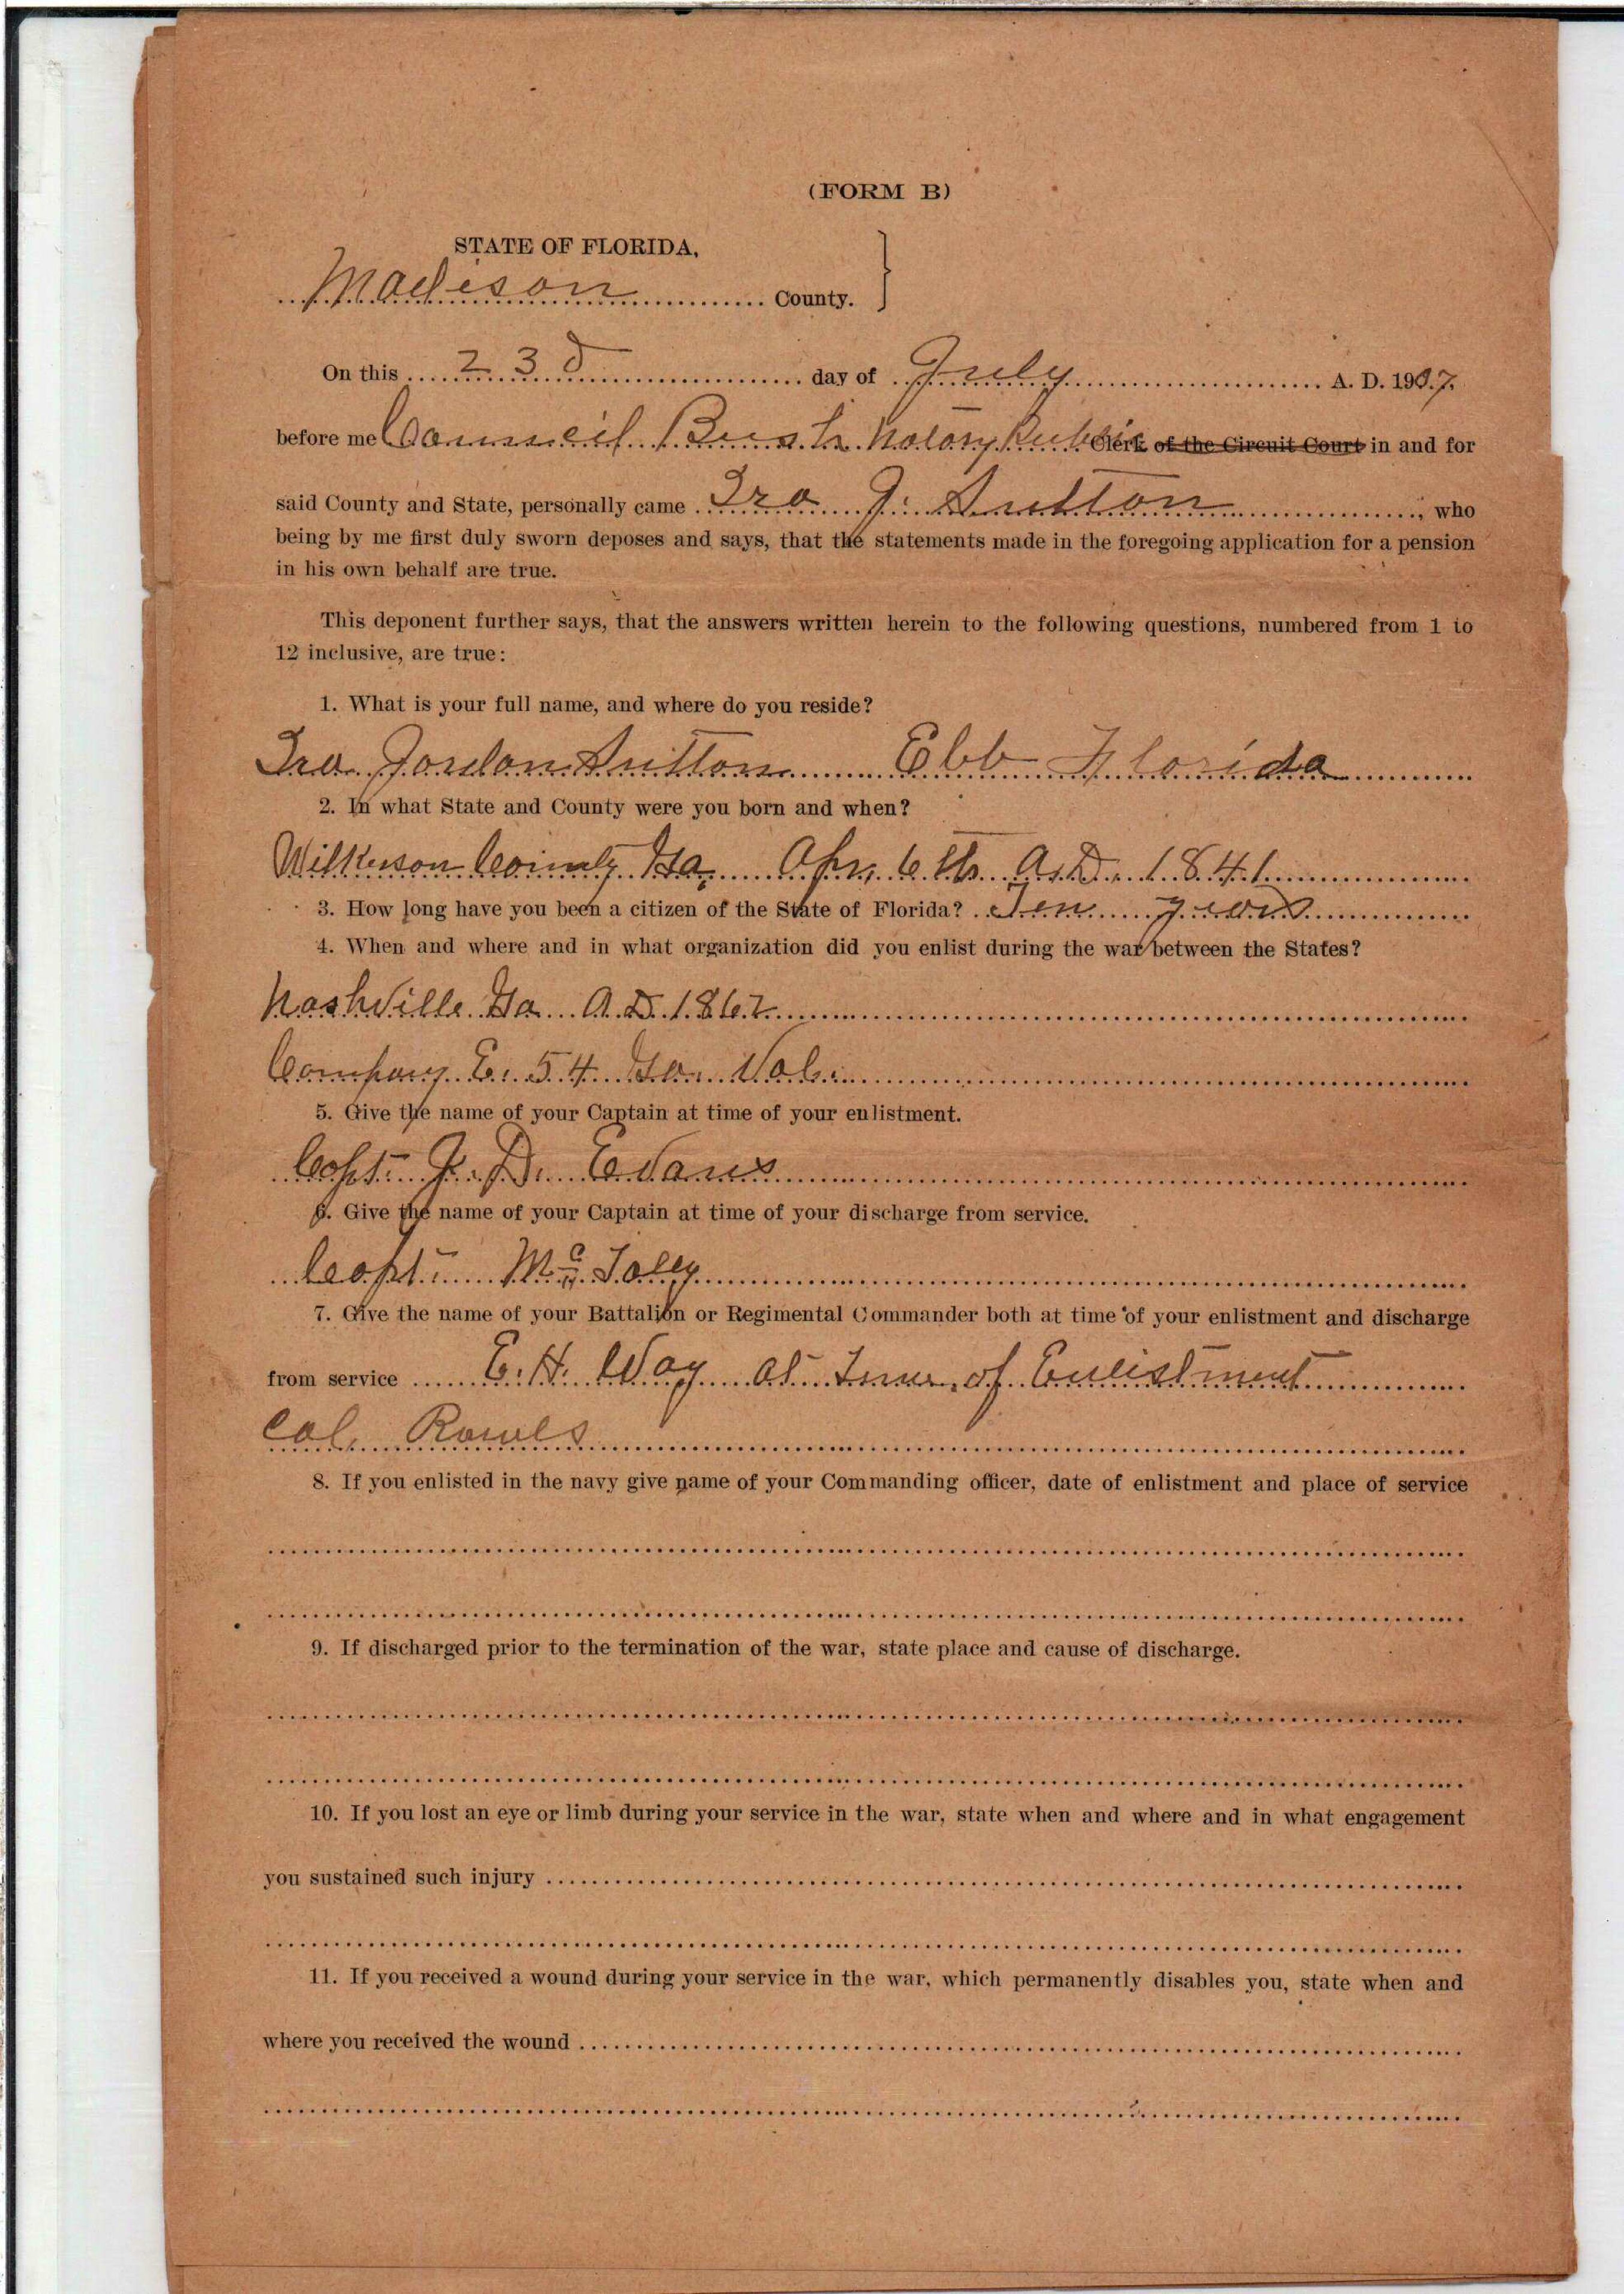 (FORM B)
STATE OF FLORIDA,
Madison County.
On this 23d day of July A. D. 1907.
before me Council Bush Notary Public Clerk of the Circuit Court in and for
said County and State, personally came Ira J. Sutton, who
being by me first duly sworn deposes and says, that the statements made in the foregoing application for a pension
in his own behalf are true.
This deponent further says, that the answers written herein to the following questions, numbered from 1 to
12 inclusive, are true:
1. What is your full name, and where do you reside?
Ira Jordan Sutton Ebb Florida
2. In what State and County were you born and when?
Wilkerson County Ga, Apr, 6th A.D. 1841
3. How long have you been a citizen of the State of Florida? Ten years
4. When and where and in what organization did you enlist during the war between the States?
Nashville Ga A.D. 1862
Company E. 54 Ga. Vol.
5. Give the name of your Captain at time of your enlistment.
Capt. J. D. Evans
6. Give the name of your Captain at time of your discharge from service.
Capt.
7. Give the name of your Battalion or Regimental Commander both at time of your enlistment and discharge
from service E. H. Way at time of Enlistment
Col. Rawls
8. If you enlisted in the navy give name of your Commanding officer, date of enlistment and place of service
9. If discharged prior to the termination of the war, state place and cause of discharge.
10. If you lost an eye or limb during your service in the war, state when and where and in what engagement
you sustained such injury
11. If you received a wound during your service in the war, which permanently disables you, state when and
where you received the wound